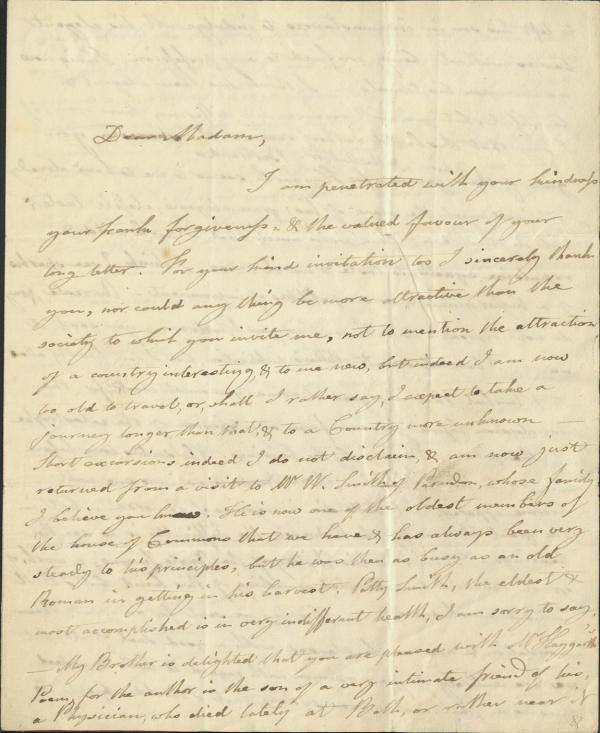 Dear Madam,
I am penetrated with your kindness
your frank forgiveness & the valued favour of your
long letter. For your kind invitation too I sincerely thank
you, nor could any thing be more attractive than the
society to which you invite me, not to mention the attraction
of a country interesting, & to me new, but indeed I am now
too old to travel, or, shall I rather say, I expect to take a
journey longer than that, & to a Country more unknown —
Short excursions indeed I do not disclaim, & am now just
returned from a visit to Mr W. Smith of Parndon, whose family
I believe you know. He is now one of the oldest members of
the house of Commons that we have & has always been very
steady to his principles, but he was then as busy as an old
Roman in getting in his harvest. Patty Smith, the eldest &
most accomplished is in very indifferent health, I am sorry to say.
— My Brother is delighted that you are pleased with Mr Haygarth's
Poem, for the author is the son of a very intimate friend of his,
a Physician, who died lately at Bath, or rather near it
&